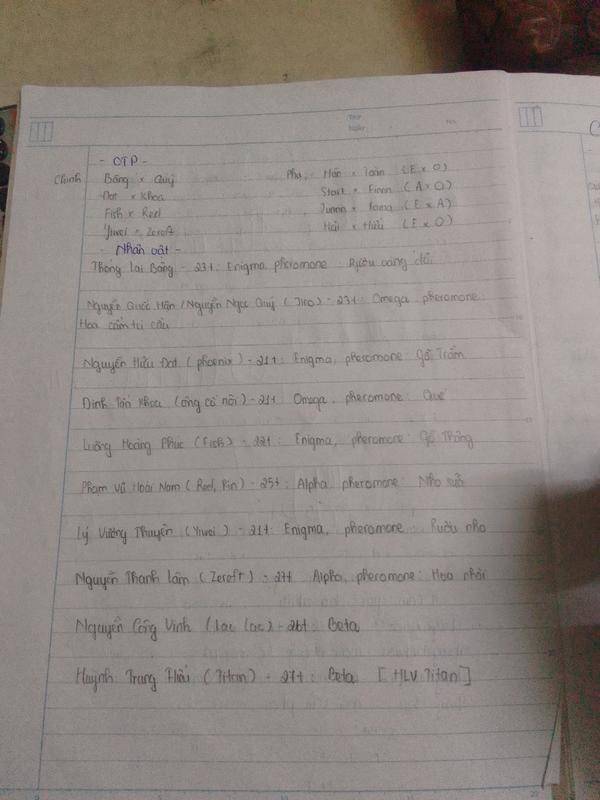 - OTP -
Chính Bâng x Quý Phụ, Hoài x Lam (E x O)
Đạt x Khoa Start x Finn (A x O)
Fish x Red (E x A)
Yiwei x Zeroft Hải x Hiếu (E x O)
- Nhân vật -
Thóng Lai Bâng - 23t: Enigma pheromone: Rượu vang
Nguyễn Quốc Hận / Nguyễn Ngọc Quý (Jiro) - 23t: Omega pheromone:
Hoa cẩm tú cầu
Nguyễn Hữu Đạt (phoenix) - 21t: Enigma, pheromone: Gỗ Trầm
Đinh Tấn Khoa (ông cố nội) - 21t Omega, pheromone: Quế
Lương Hoàng Phúc (Fish) - 22t: Enigma, pheromone: Gỗ Thông
Phạm Vũ Hoài Nam (Red, Rin) - 25t: Alpha pheromone: Nho
Lý Vương Thuyên (Yiwei) - 21t: Enigma, pheromone: Rượu nho
Nguyễn Thanh Lâm (Zeroft) - 27t Alpha, pheromone: Hoa nhài
Nguyễn Công Vinh (lạc lạc) - 26t: Beta
Huỳnh Trọng Hải (Titan) - 27t: Beta [HLV Titan]